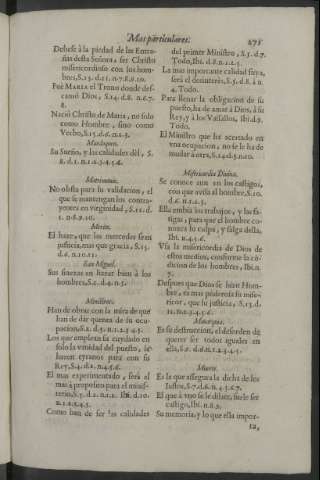 Mas particulares. 275
Debese à la piedad de las Entra-
ñas desta Señora, ser Christo
misericordioso con los hom-
bres, S.13. d.21. n.7.8.9.10.
Fuè MARIA el Trono donde des-
cansò Dios, S.14. d.8. n.6.7.
8.
Naciò Christo de Maria, no solo
como Hombre, sino como
Verbo, S.15. d.6. n.2.3.
Su Sueño, y las calidades dèl, S.
8. d.1. n.1.2.3.4.5.6.
Matrimonio.
No obsta para su validacion, el
que se mantengan los contra-
yentes en virginidad, S.11. d.
1. n.8.9.10.
El hazer, que las mercedes sean
justicia, mas que gracia, S.15.
d.6. n.10.11.
San Miguel.
Sus finezas en hazer bien à los
hombres, S.1. d.4. n.5.
Ministros.
Han de obrar con la mira de que
han de dar quenta de su ocu-
pacion, S.2. d.5. n.1.2.3.4.5.
Los que emplean su cuydado en
solo la vanidad del puesto, se
hazen tyranos para con su
Rey, S.4. d.2. n.4.5.6.
El mas experimentado, serà el
mas à proposito para el minis-
terio, S.5. d.2. n.1.2. Ibi. d.10.
n.1.2.3.4.5.
Como han de ser las calidades
del primer Ministro, S.5. d.7.
Todo, Ibi. d.8. n.1.2.3.
La mas importante calidad suya,
serà el desinterès, S.5. d.8. à n.
4. Todo.
Para llenar la obligacion de su
puesto, ha de amar à Dios, à su
Rey, y à los Vassallos, Ibi. d.9.
Todo.
El Ministro que ha acertado en
vna ocupacion, no se le ha de
mudar à otra, S.14. d.3. n.10.
Misericordia Divina.
Se conoce aun en los castigos,
con que avisa al hombre, S.10.
d.6. n.1.2.3.
Ella embia los trabajos, y las fa-
tigas, para que el hombre co-
nozca su culpa, y salga della,
Ibi. n.4.5.6.
Vsa la misericordia de Dios de
estos medios, conforme la co-
dicion de los hombres, Ibi. n.
7.
Despues que Dios se hizo Hom-
bre, es mas poderosa su mise-
ricor, que su justicia, S.13. d.
Es su destruccion, el desorden de
querer ser todos iguales en
ella, S.9. d.6. n.1.2.3.4.5.
Muerte.
Es la que assegura la dicha de los
Justos, S.7. d.6. n.4.5.6.7.
El que à vno se le dilate, suele ser
castigo, Ibi. n.8.9.
Su memoria, y lo que ella impor-
ta,